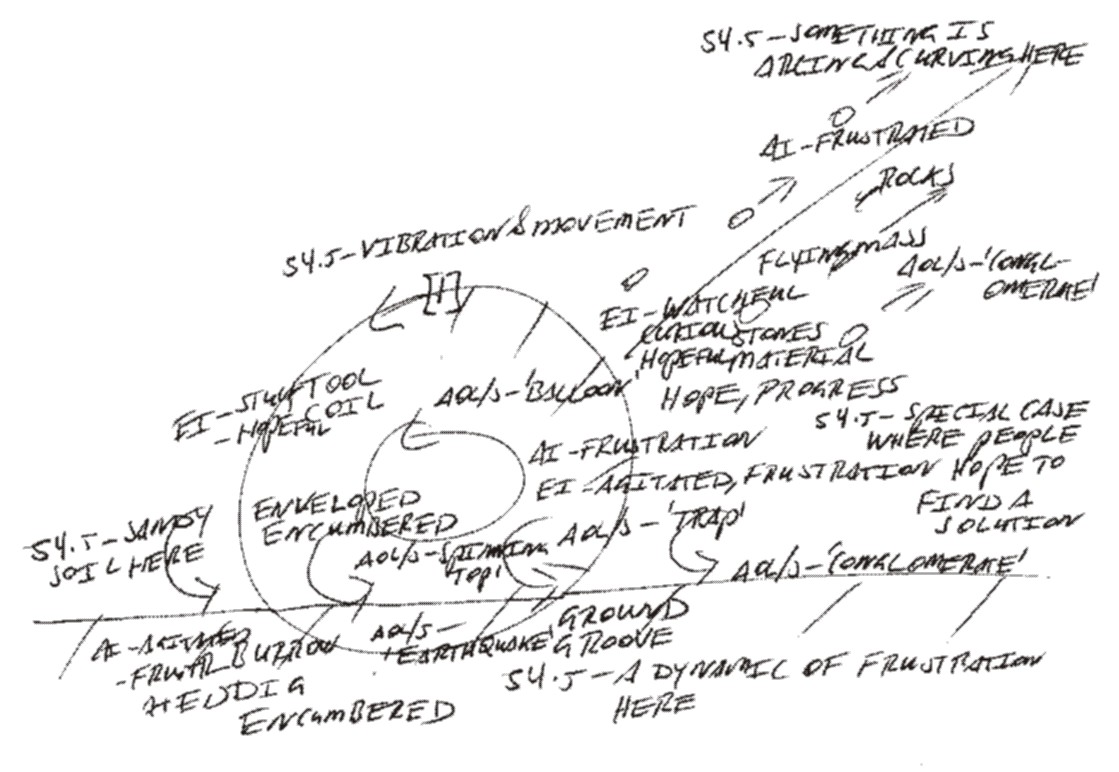 S4.5-SOMETHING IS
ARCING & CURVING HERE
AI-FRUSTRATED
ROCKS
S4.5-VIBRATION & MOVEMENT
FLYING MASS
AOL/S-'CONGL-
OMERATE'
[H]
EI-WATCHFUL
CURIOUS STONES
HOPEFUL MATERIAL
HOPE, PROGRESS
EI-STUFF TOOL
-HOPEFUL COIL
AOL/S-'BALLOON'
S4.5-SPECIAL CASE
WHERE PEOPLE
HOPE TO
FIND A
SOLUTION
AI-FRUSTRATION
EI-AGITATED, FRUSTRATION
ENVELOPED
ENCUMBERED
S4.5-SANDY
SOIL HERE
AOL/S-SPINNING
TOP'
AOL/S-'TRAP'
AOL/S-'CONGLOMERATE'
AI-AGITATED
-FRUSTR. BURROW
DIG
ENCUMBERED
AOL/S-
'EARTHQUAKE'
GROUND
GROOVE
S4.5-A DYNAMIC OF FRUSTRATION
HERE